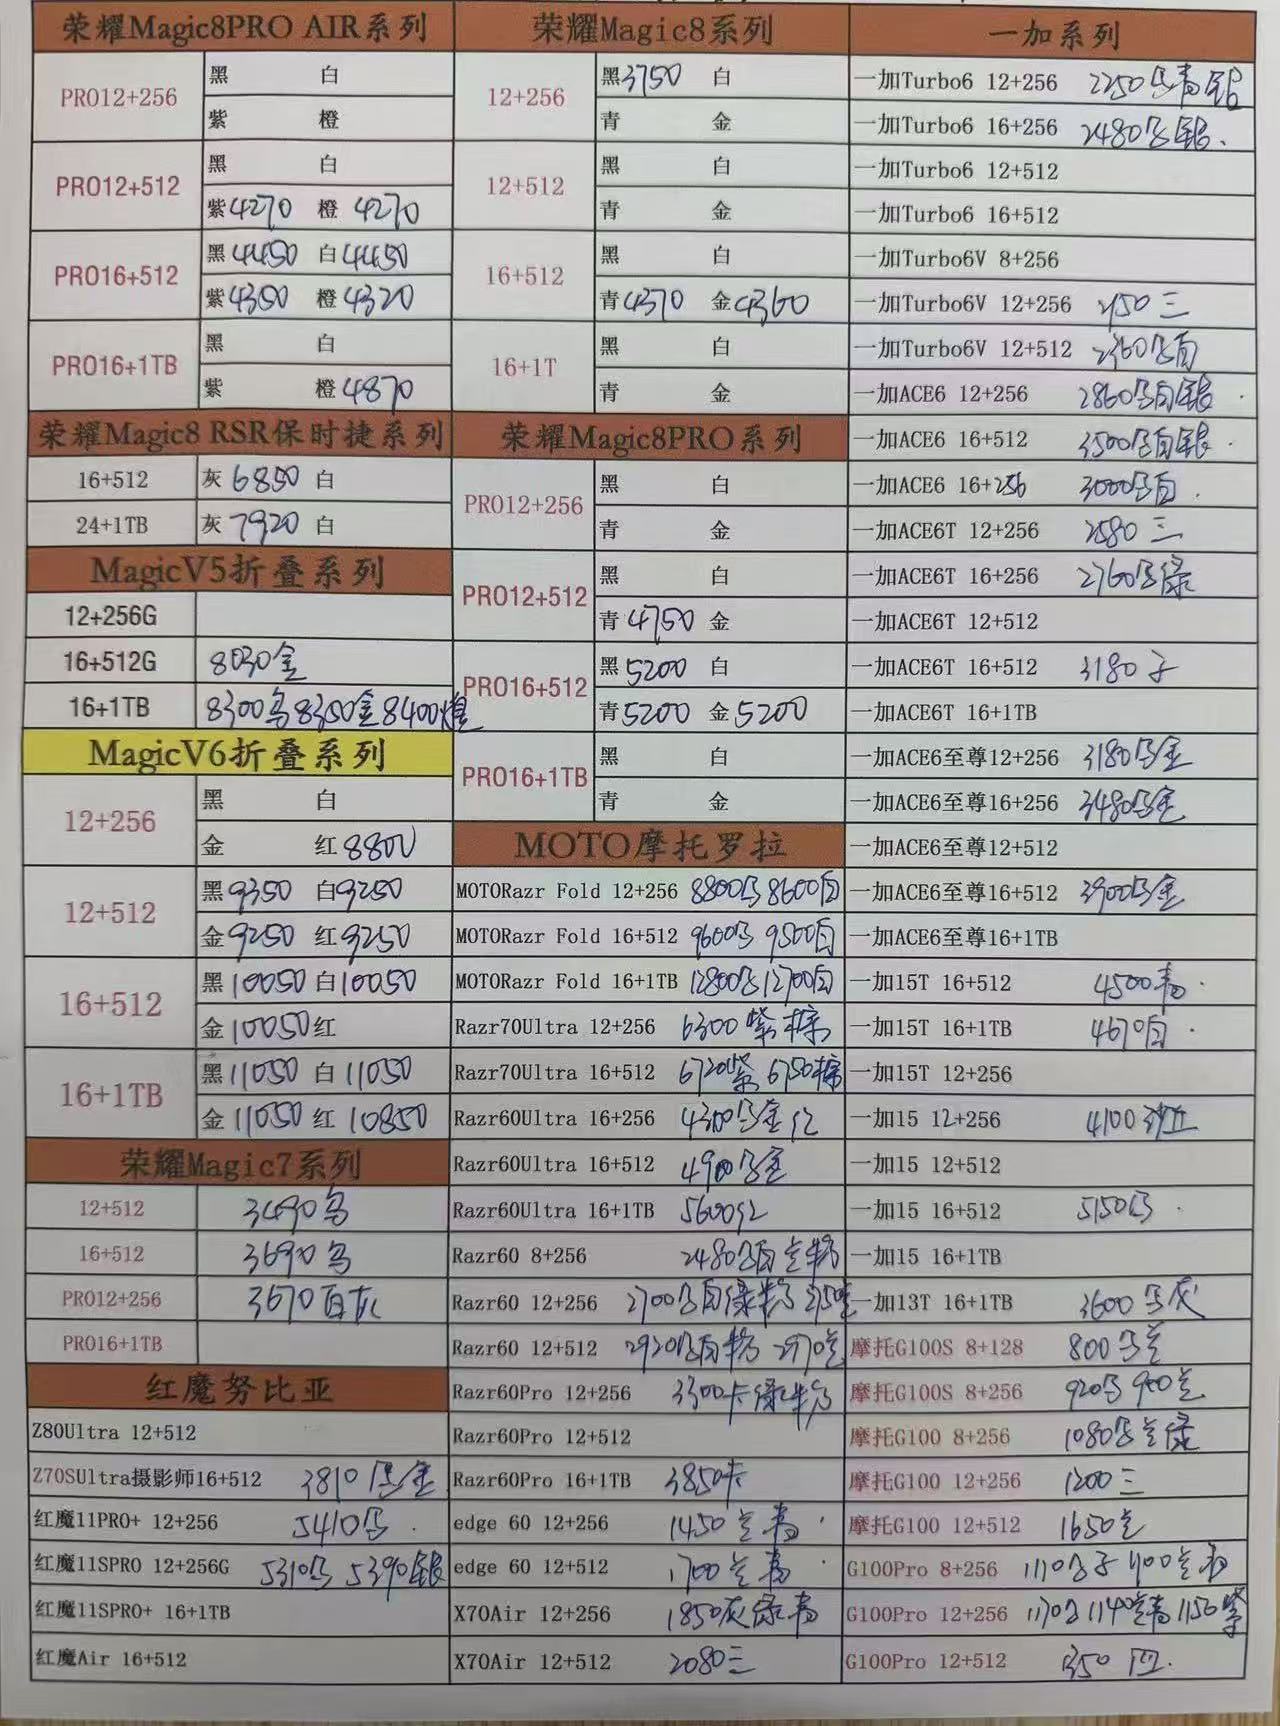 荣耀Magic8PRO AIR系列
PRO12+256 黑 白
紫 橙
PRO12+512 黑 白
紫4270 橙 4270
PRO16+512 黑4450 白4450
紫4350 橙4320
PRO16+1TB 黑 白
紫 橙4870
荣耀Magic8 RSR保时捷系列
16+512 灰 6850 白
24+1TB 灰 7920 白
MagicV5折叠系列
12+256G
16+512G 8030金
16+1TB 8300乌8350金8400
MagicV6折叠系列
12+256 黑 白
金 红8800
12+512 黑9350 白9250
金9250 红9250
16+512 黑10050 白10050
金10050 红
16+1TB 黑11050 白11050
金11050 红 10850
荣耀Magic7系列
12+512 3490乌
16+512 3690乌
PRO12+256 3670白灰
PRO16+1TB
红魔努比亚
Z80Ultra 12+512
Z70SUltra摄影师16+512 3810黑金
红魔11PRO+ 12+256 5410乌
红魔11SPRO 12+256G 5310乌 5390银
红魔11SPRO+ 16+1TB
红魔Air 16+512
荣耀Magic8系列
12+256 黑3750 白
青 金
12+512 黑 白
青 金
16+512 黑 白
青4370 金4360
16+1T 黑 白
青 金
荣耀Magic8PRO系列
PRO12+256 黑 白
青 金
PRO12+512 黑 白
青4750 金
PRO16+512 黑5200 白
青5200 金5200
PRO16+1TB 黑 白
青 金
MOTO摩托罗拉
MOTORazr Fold 12+256 8800乌8600白
MOTORazr Fold 16+512 9600乌 9500白
MOTORazr Fold 16+1TB 12800乌12700白
Razr70Ultra 12+256 6300紫棕
Razr70Ultra 16+512 6720紫 6750棕
Razr60Ultra 16+256 4300乌金红
Razr60Ultra 16+512 4900乌金
Razr60Ultra 16+1TB 5600红
Razr60 8+256 2480乌白兰粉
Razr60 12+256 2700乌白绿粉
Razr60 12+512 2920乌白粉 2970兰
Razr60Pro 12+256 3300卡绿粉
Razr60Pro 12+512
Razr60Pro 16+1TB 3850卡
edge 60 12+256 1450兰青
edge 60 12+512 1700兰青
X70Air 12+256 1850灰绿青
X70Air 12+512 2080三
一加系列
一加Turbo6 12+256 2250乌青银
一加Turbo6 16+256 2480乌银
一加Turbo6 12+512
一加Turbo6 16+512
一加Turbo6V 8+256
一加Turbo6V 12+256 三
一加Turbo6V 12+512 2360乌白
一加ACE6 12+256 2860乌白银
一加ACE6 16+512 3500乌白银
一加ACE6 16+256 3000乌白
一加ACE6T 12+256 2580 三
一加ACE6T 16+256 2760乌绿
一加ACE6T 12+512
一加ACE6T 16+512 3180子
一加ACE6T 16+1TB
一加ACE6至尊12+256 3180乌金
一加ACE6至尊16+256 3480乌金
一加ACE6至尊12+512
一加ACE6至尊16+512 3900乌金
一加ACE6至尊16+1TB
一加15T 16+512 4500青
一加15T 16+1TB 4670白
一加15T 12+256
一加15 12+256 4100
一加15 12+512
一加15 16+512 5150乌
一加15 16+1TB
一加13T 16+1TB 3600乌灰
摩托G100S 8+128 800乌兰
摩托G100S 8+256 920乌 900兰
摩托G100 8+256 1080乌兰绿
摩托G100 12+256 1200三
摩托G100 12+512 1650兰
G100Pro 8+256 1110乌子 1100兰青
G100Pro 12+256 1170乌1140兰青1150紫
G100Pro 12+512 1350 四